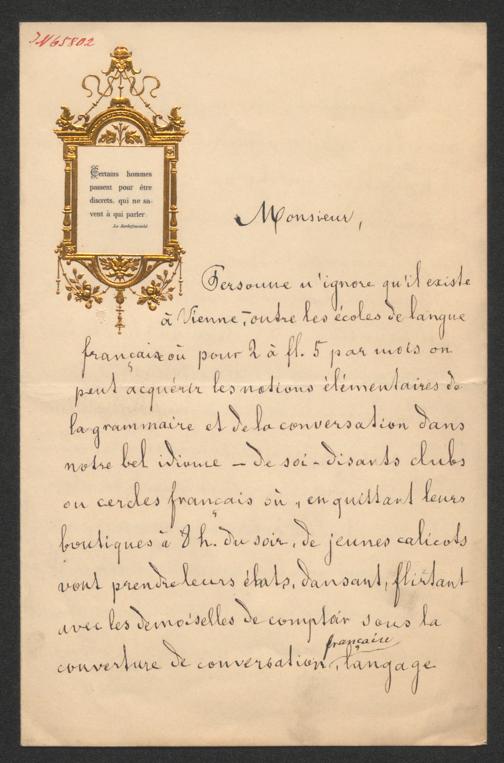 IN 65802
Certains hommes
passent pour être
discrets, qui ne sa-
vent à qui parler.
La Rochefoucauld
Monsieur,
Personne n'ignore qu'il existe
à Vienne, outre les écoles de langue
française où pour 2 à fl. 5 par mois on
peut acquérir les notions élémentaires de
la grammaire et de la conversation dans
notre bel idiome — de soi-disants clubs
ou cercles français où, en quittant leurs
boutiques à 8 h. du soir, de jeunes calicots
vont prendre leurs états, dansant, flirtant
avec les demoiselles de comptoir sous la
française
couverture de conversation, langage